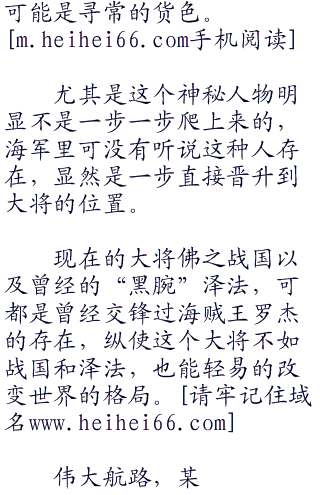 可能是寻常的货色。
[m.heihei66.com手机阅读]
尤其是这个神秘人物明
显不是一步一步爬上来的，
海军里可没有听说这种人存
在，显然是一步直接晋升到
大将的位置。
现在的大将佛之战国以
及曾经的“黑腕”泽法，可
都是曾经交锋过海贼王罗杰
的存在，纵使这个大将不如
战国和泽法，也能轻易的改
变世界的格局。[请牢记住域
名www.heihei66.com]
伟大航路，某